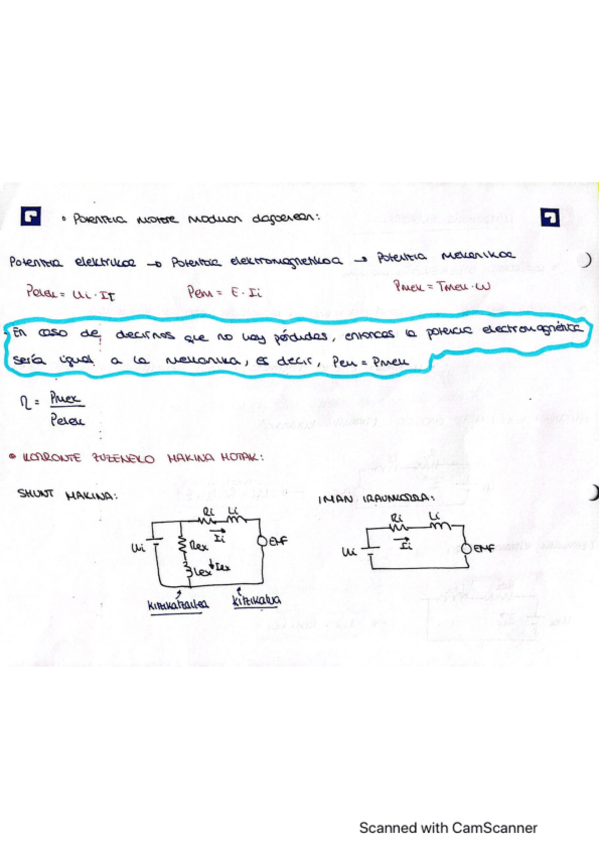 • Potentzia motore moduan dagoenean:
Potentzia elektrikoa → Potentzia elektromagnetikoa → Potentzia Mekanikoa
Pelek = Ui · IT
Pem = E · Ii
Pmek = Tmek · ω
En caso de decirnos que no hay pérdidas, entonces la potencia electromagnética
sería igual a la mekanika, es decir, Pem = Pmek
η = Pmek / Pelek
• KORRONTE ZUZENEKO MAKINA MOTAK:
SHUNT MAKINA:
Ri Li
Ui
Ii
Rex
EMF
Lex Iex
kitzikatzailea
kitzikatua
IMAN IRAUNKORRA:
Ri Li
Ui
Ii
EMF
Scanned with CamScanner